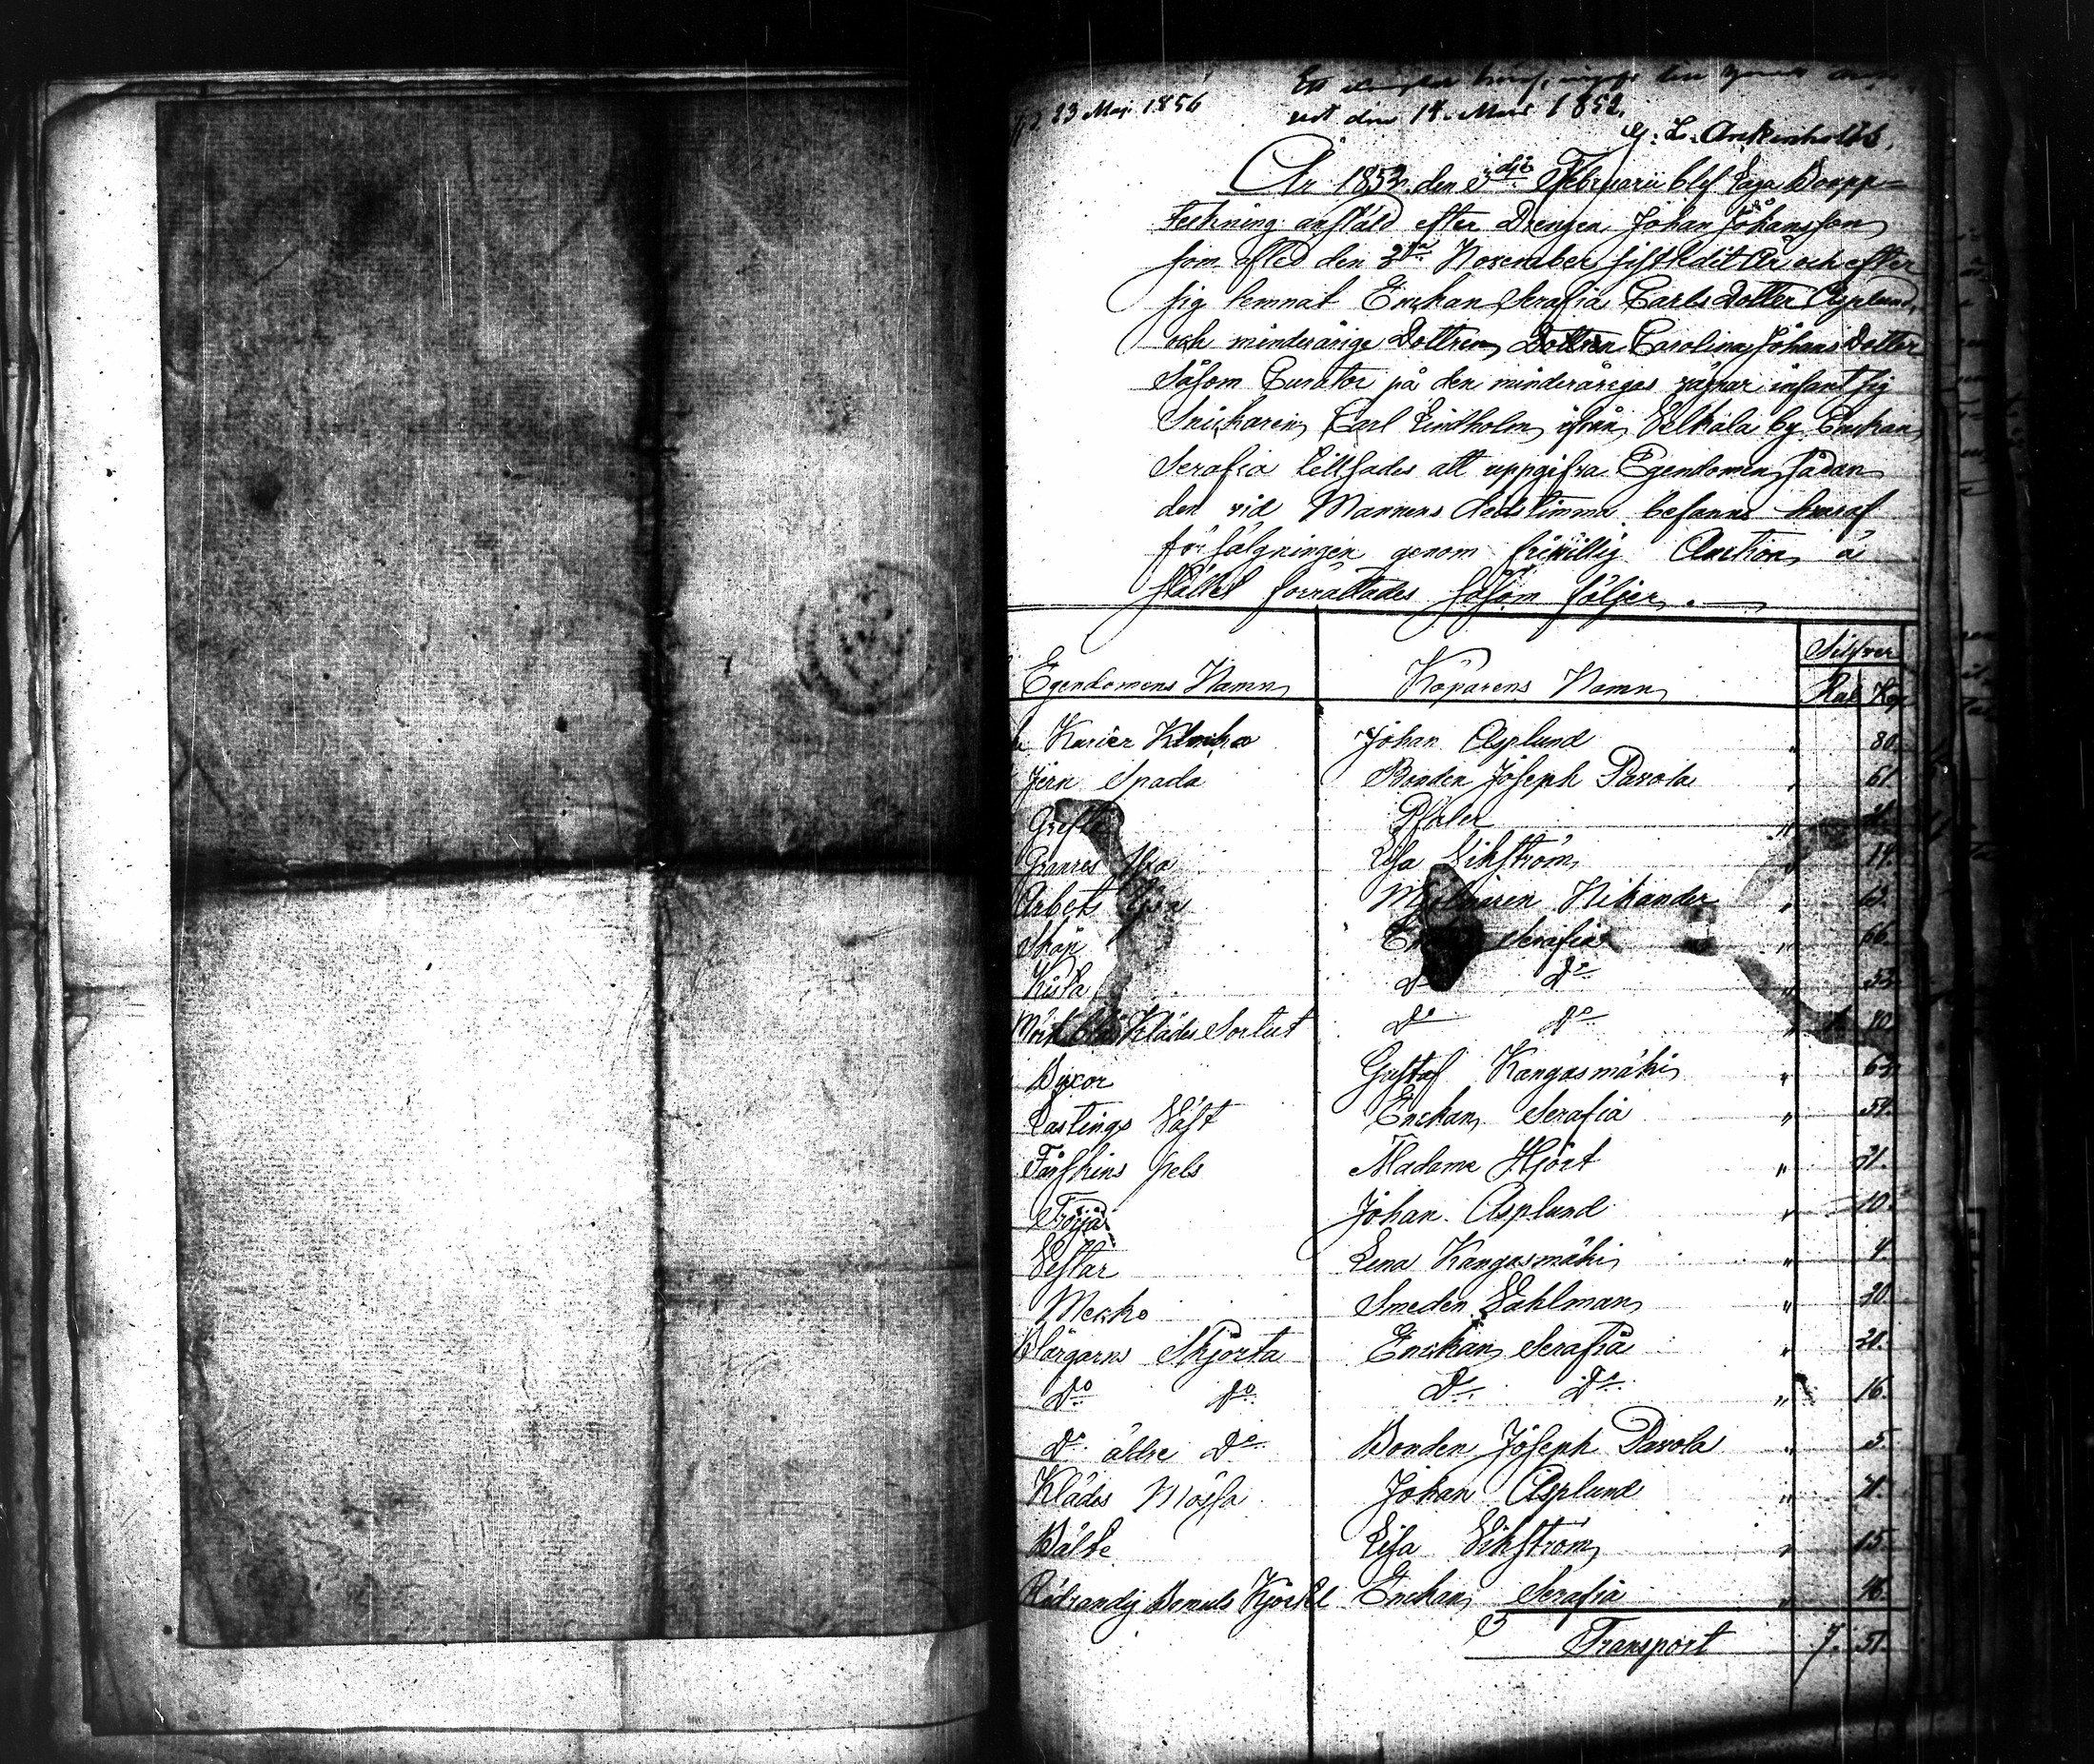 23 Maj 1856
den 14 Mars 1852.
År 1852 den 3dje Februarii blef Laga Boupp-
teckning anstäld efter Drengen Johan Johansson
som afled den 3dje November sistledit År och efter
sig lemnat Enckan Serafia Carls Dotter Asplund,
och minderårige Dottren Dottren Carolina Johans Dotter
Såsom Curator på den minderåriges vägnar infant sig
Snickaren Carl Lindholm ifrån Velkala by Enckan
Serafia tillsades att uppgifva Egendomen sådan
den vid Mannens dödstimma befanns hvaraf
försälgningen genom frivillig Auction å
stället förrättades såsom följer.
Silfver
Egendomens Namn Köparens Namn Rub. Kop.
Karier Klocka Johan Asplund " 80.
Jern Spada Bonden Joseph Pavola " 61.
Grefte Pfaler "
Granris Yxa Lisa Vikström " 14.
Arbets Yxa Mjölnaren Nikander "
Skåp Enckan Serafia " 66.
Kista Do Do " 53.
Mörk Blå Klädes Sortut Do Do " 40
Byxor Gustaf Kangasmäki " 63.
Lastings Väst Enckan Serafia " 54.
Fårskins Pels Madame Hjort " 21.
Tröja Johan Asplund " 10.
Vestar Lena Kangasmäki " 4.
Mekko Smeden Vahlman " 30.
Blårgarns Skjorta Enckan Serafia " 20.
Do Do Do Do " 16.
Do äldre Do Bonden Joseph Pavola " 5.
Klädes Mössa Johan Asplund "
Bälte Lisa Vikström " 15.
Rödrandig Bomuls Kjortel Enckan Serafia " 46.
Transport 7. 51.